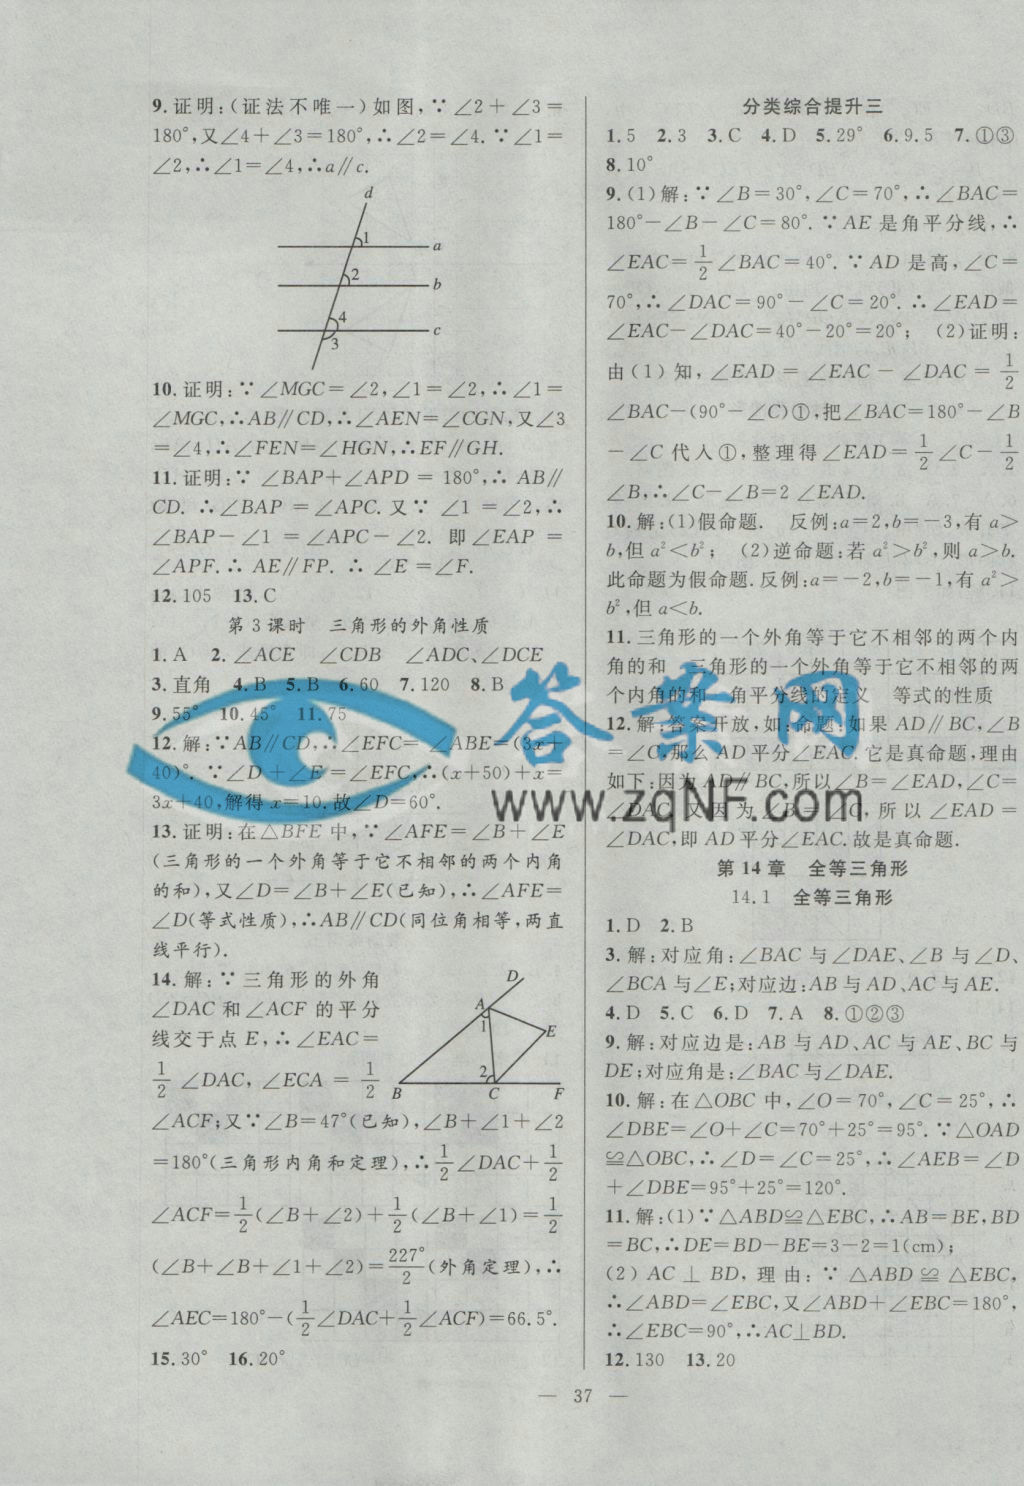 9.证明:(证法不唯一)如图,∵∠2+∠3=
180°,又∠4+∠3=180°,∴∠2=∠4.∵∠1=
∠2,∴∠1=∠4,∴a∥c.
d
1
a
2
b
4
c
3
10.证明:∵∠MGC=∠2,∠1=∠2,∴∠1=
∠MGC,∴AB∥CD,∴∠AEN=∠CGN,又∠3
=∠4,∴∠FEN=∠HGN,∴EF∥GH.
11.证明:∵∠BAP+∠APD=180°,∴AB∥
CD.∴∠BAP=∠APC.又∵∠1=∠2,∴
∠BAP-∠1=∠APC-∠2.即∠EAP=
∠APF.∴AE∥FP.∴∠E=∠F.
12.105 13.C
第3课时 三角形的外角性质
1.A 2.∠ACE ∠CDB ∠ADC、∠DCE
3.直角 4.B 5.B 6.60 7.120 8.B
9.55° 10.45° 11.75
12.解:∵AB∥CD,∴∠EFC=∠ABE=(3x+
40)°.∵∠D+∠E=∠EFC,∴(x+50)+x=
3x+40,解得x=10.故∠D=60°.
13.证明:在△BFE中,∵∠AFE=∠B+∠E
(三角形的一个外角等于它不相邻的两个内角
的和),又∠D=∠B+∠E(已知),∴∠AFE=
∠D(等式性质),∴AB∥CD(同位角相等,两直
线平行).
14.解:∵三角形的外角
∠DAC和∠ACF的平分
线交于点E,∴∠EAC=
1/2∠DAC,∠ECA=1/2
D
A
1
E
2
B
C
F
∠ACF;又∵∠B=47°(已知),∠B+∠1+∠2
=180°(三角形内角和定理),∴1/2∠DAC+1/2
∠ACF=1/2(∠B+∠2)+1/2(∠B+∠1)=1/2
(∠B+∠B+∠1+∠2)=227°/2(外角定理),∴
∠AEC=180°-(1/2∠DAC+1/2∠ACF)=66.5°.
15.30° 16.20°
分类综合提升三
1.5 2.3 3.C 4.D 5.29° 6.9.5 7.①③
8.10°
9.(1)解:∵∠B=30°,∠C=70°,∴∠BAC=
180°-∠B-∠C=80°.∵AE是角平分线,∴
∠EAC=1/2∠BAC=40°.∵AD是高,∠C=
70°,∴∠DAC=90°-∠C=20°.∴∠EAD=
∠EAC-∠DAC=40°-20°=20°; (2)证明:
由(1)知,∠EAD=∠EAC-∠DAC=1/2
∠BAC-(90°-∠C)①,把∠BAC=180°-∠B
-∠C代人①,整理得∠EAD=1/2∠C-1/2
∠B,∴∠C-∠B=2∠EAD.
10.解:(1)假命题. 反例:a=2,b=-3,有a>
b,但a²<b²; (2)逆命题:若a²>b²,则a>b.
此命题为假命题.反例:a=-2,b=-1,有a²>
b²,但a<b.
11.三角形的一个外角等于它不相邻的两个内
角的和 三角形的一个外角等于它不相邻的两
个内角的和 角平分线的定义 等式的性质
12.解:答案开放,如:命题:如果AD∥BC,∠B
=∠C,那么AD平分∠EAC.它是真命题,理由
如下:因为AD∥BC,所以∠B=∠EAD,∠C=
∠DAC,又因为∠B=∠C,所以∠EAD=
∠DAC,即AD平分∠EAC.故是真命题.
第14章 全等三角形
14.1 全等三角形
1.D 2.B
3.解:对应角:∠BAC与∠DAE、∠B与∠D、
∠BCA与∠E;对应边:AB与AD、AC与AE.
4.D 5.C 6.D 7.A 8.①②③
9.解:对应边是:AB与AD、AC与AE、BC与
DE;对应角是:∠BAC与∠DAE.
10.解:在△OBC中,∠O=70°,∠C=25°,∴
∠DBE=∠O+∠C=70°+25°=95°.∵△OAD
≌△OBC,∴∠D=∠C=25°,∴∠AEB=∠D
+∠DBE=95°+25°=120°.
11.解:(1)∵△ABD≌△EBC,∴AB=BE,BD
=BC,∴DE=BD-BE=3-2=1(cm);
(2)AC⊥BD,理由:∵△ABD≌△EBC,
∴∠ABD=∠EBC,又∠ABD+∠EBC=180°,
∴∠EBC=90°,∴AC⊥BD.
12.130 13.20
— 37 —
答案网
www.zqNF.com